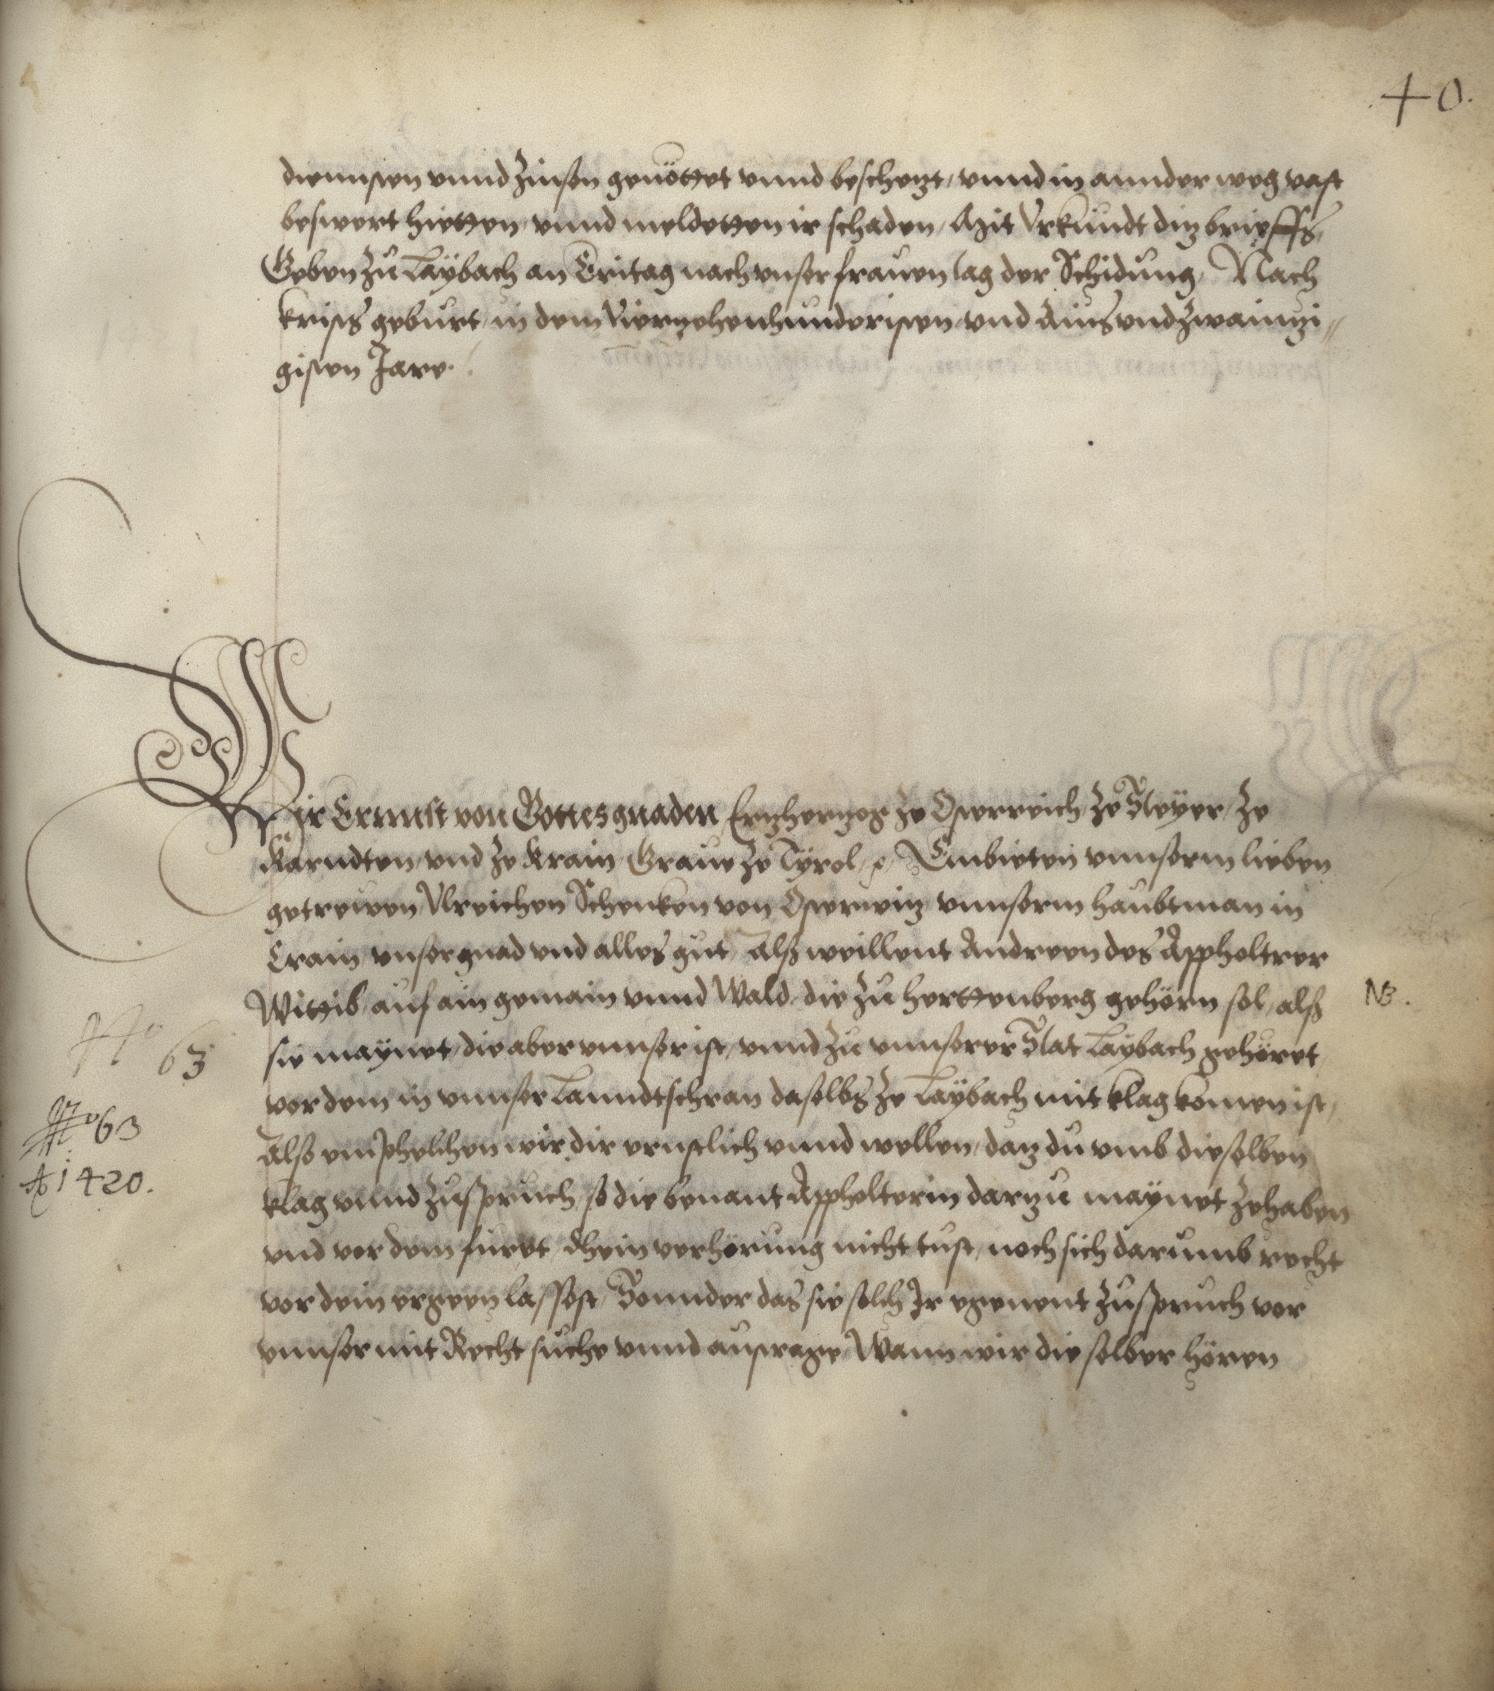 40.
diennsten vnnd Zinsen genöttet vnnd beschezt, vnnd in annder weg vast
beswert hietten, vnnd meldetten ir schaden, Mit Vrkundt diz brieffs,
Geben zu Laybach an Eritag nach vnser frauen tag der Schidung, Nach
krists geburt, in dem Vierzehenhunderisten, vnd Ains vnd Zwainzi=
gisten Jare.
Wir Ernnst von Gottes gnaden Erzherzog ze Osterreich ze Steyer, ze
Karndten, vnd ze Krain, Graue ze Tyrol, Embieten vnnserm lieben
getrewen Vlreichen Schenken von Osterwiz, vnnserm haubtman in
Crain, vnser gnad vnd alles gut, Alß weillent Andreen des Appholtrer
Wittib, auf ain gemain vnnd Wald, die zu herttenberg gehörn sol, alß
NB.
sie maynet, die aber vnnser ist, vnnd zu vnnserer Stat Laybach gehöret,
No 63
vor dem in vnnser Lanndtschran daselbs ze Laybach mit klag komen ist,
No 63
Alß emphelhen wir dir ernstlich vnnd wellen, daz du vmb dieselben
Ao 1420.
klag vnnd zuspruch, so die benant Appholterin darzu maynet ze haben
vnd vor dem furet, dhein verhörung nicht tust, noch sich darumb recht
vor dein ergeen lassest, Sonnder das sie solch Ir egenent zuspruch vor
vnnser mit Recht suche vnnd austrage, Wann wir die selber hören